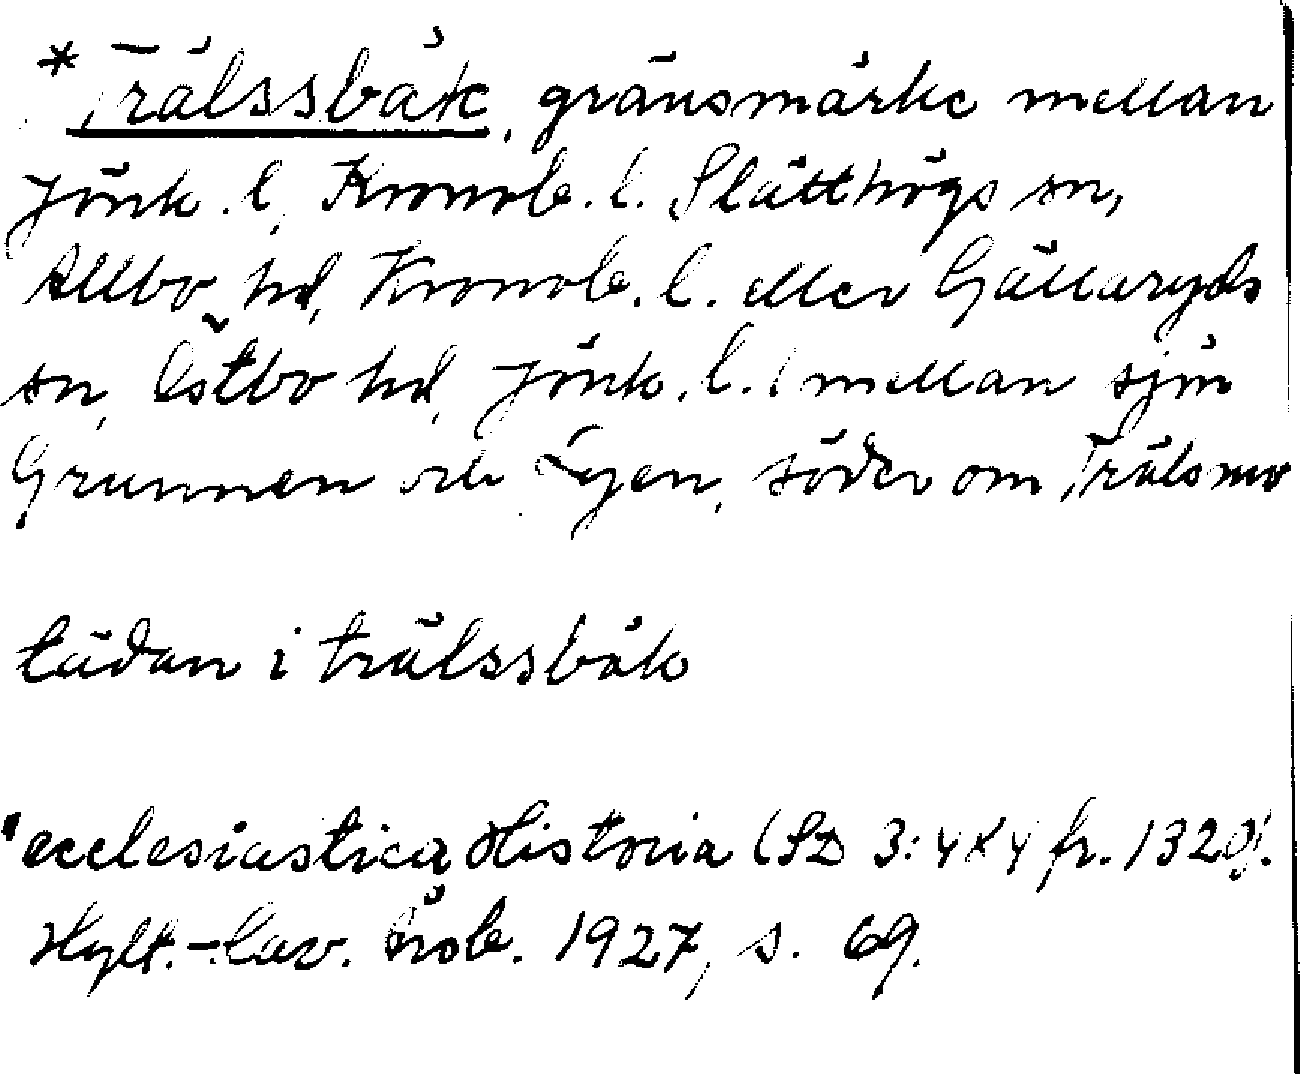 * Trälssbäk, gränsmärke mellan
Jönk. l, Kronob. l. Slätthögs sn,
Allbo hd, Kronob. l. eller Gällaryds
sn, Östbo hd, Jönk. l. (mellan sjön
Grunnen och Lyen, söder om Trälsmo
tädan i trälssbäk
ecclesiastica Historia (SD 3:484 fr. 1320).
Hylt.-Cav. 1927, s. 69.